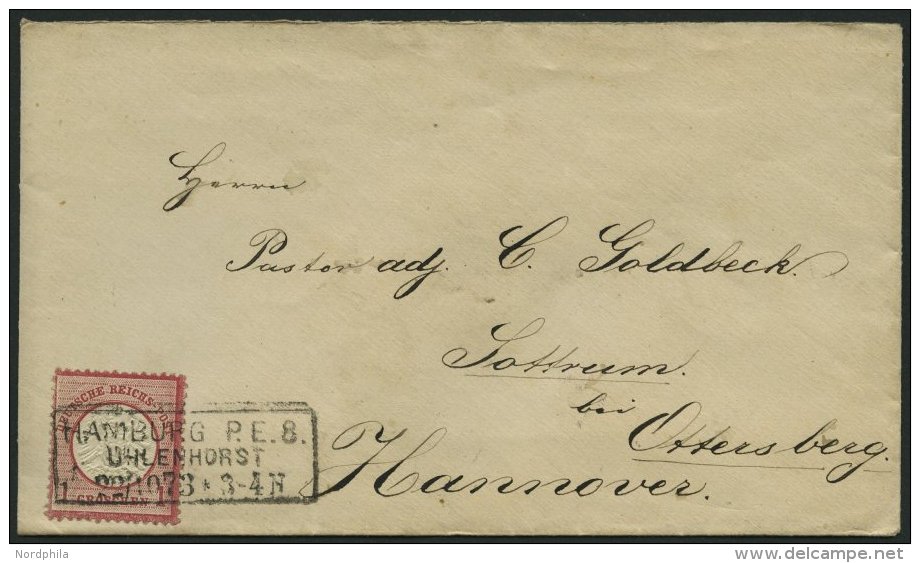 Herrn
Pastor adj. C. Goldbeck.
Sottrum.
bei
Ottersberg.
Hannover.
DEUTSCHE REICHS-POST
HAMBURG P.E.8.
UHLENHORST
1073 * 3-4 N
1 GROSCHEN
Nordphila
delcampe.net